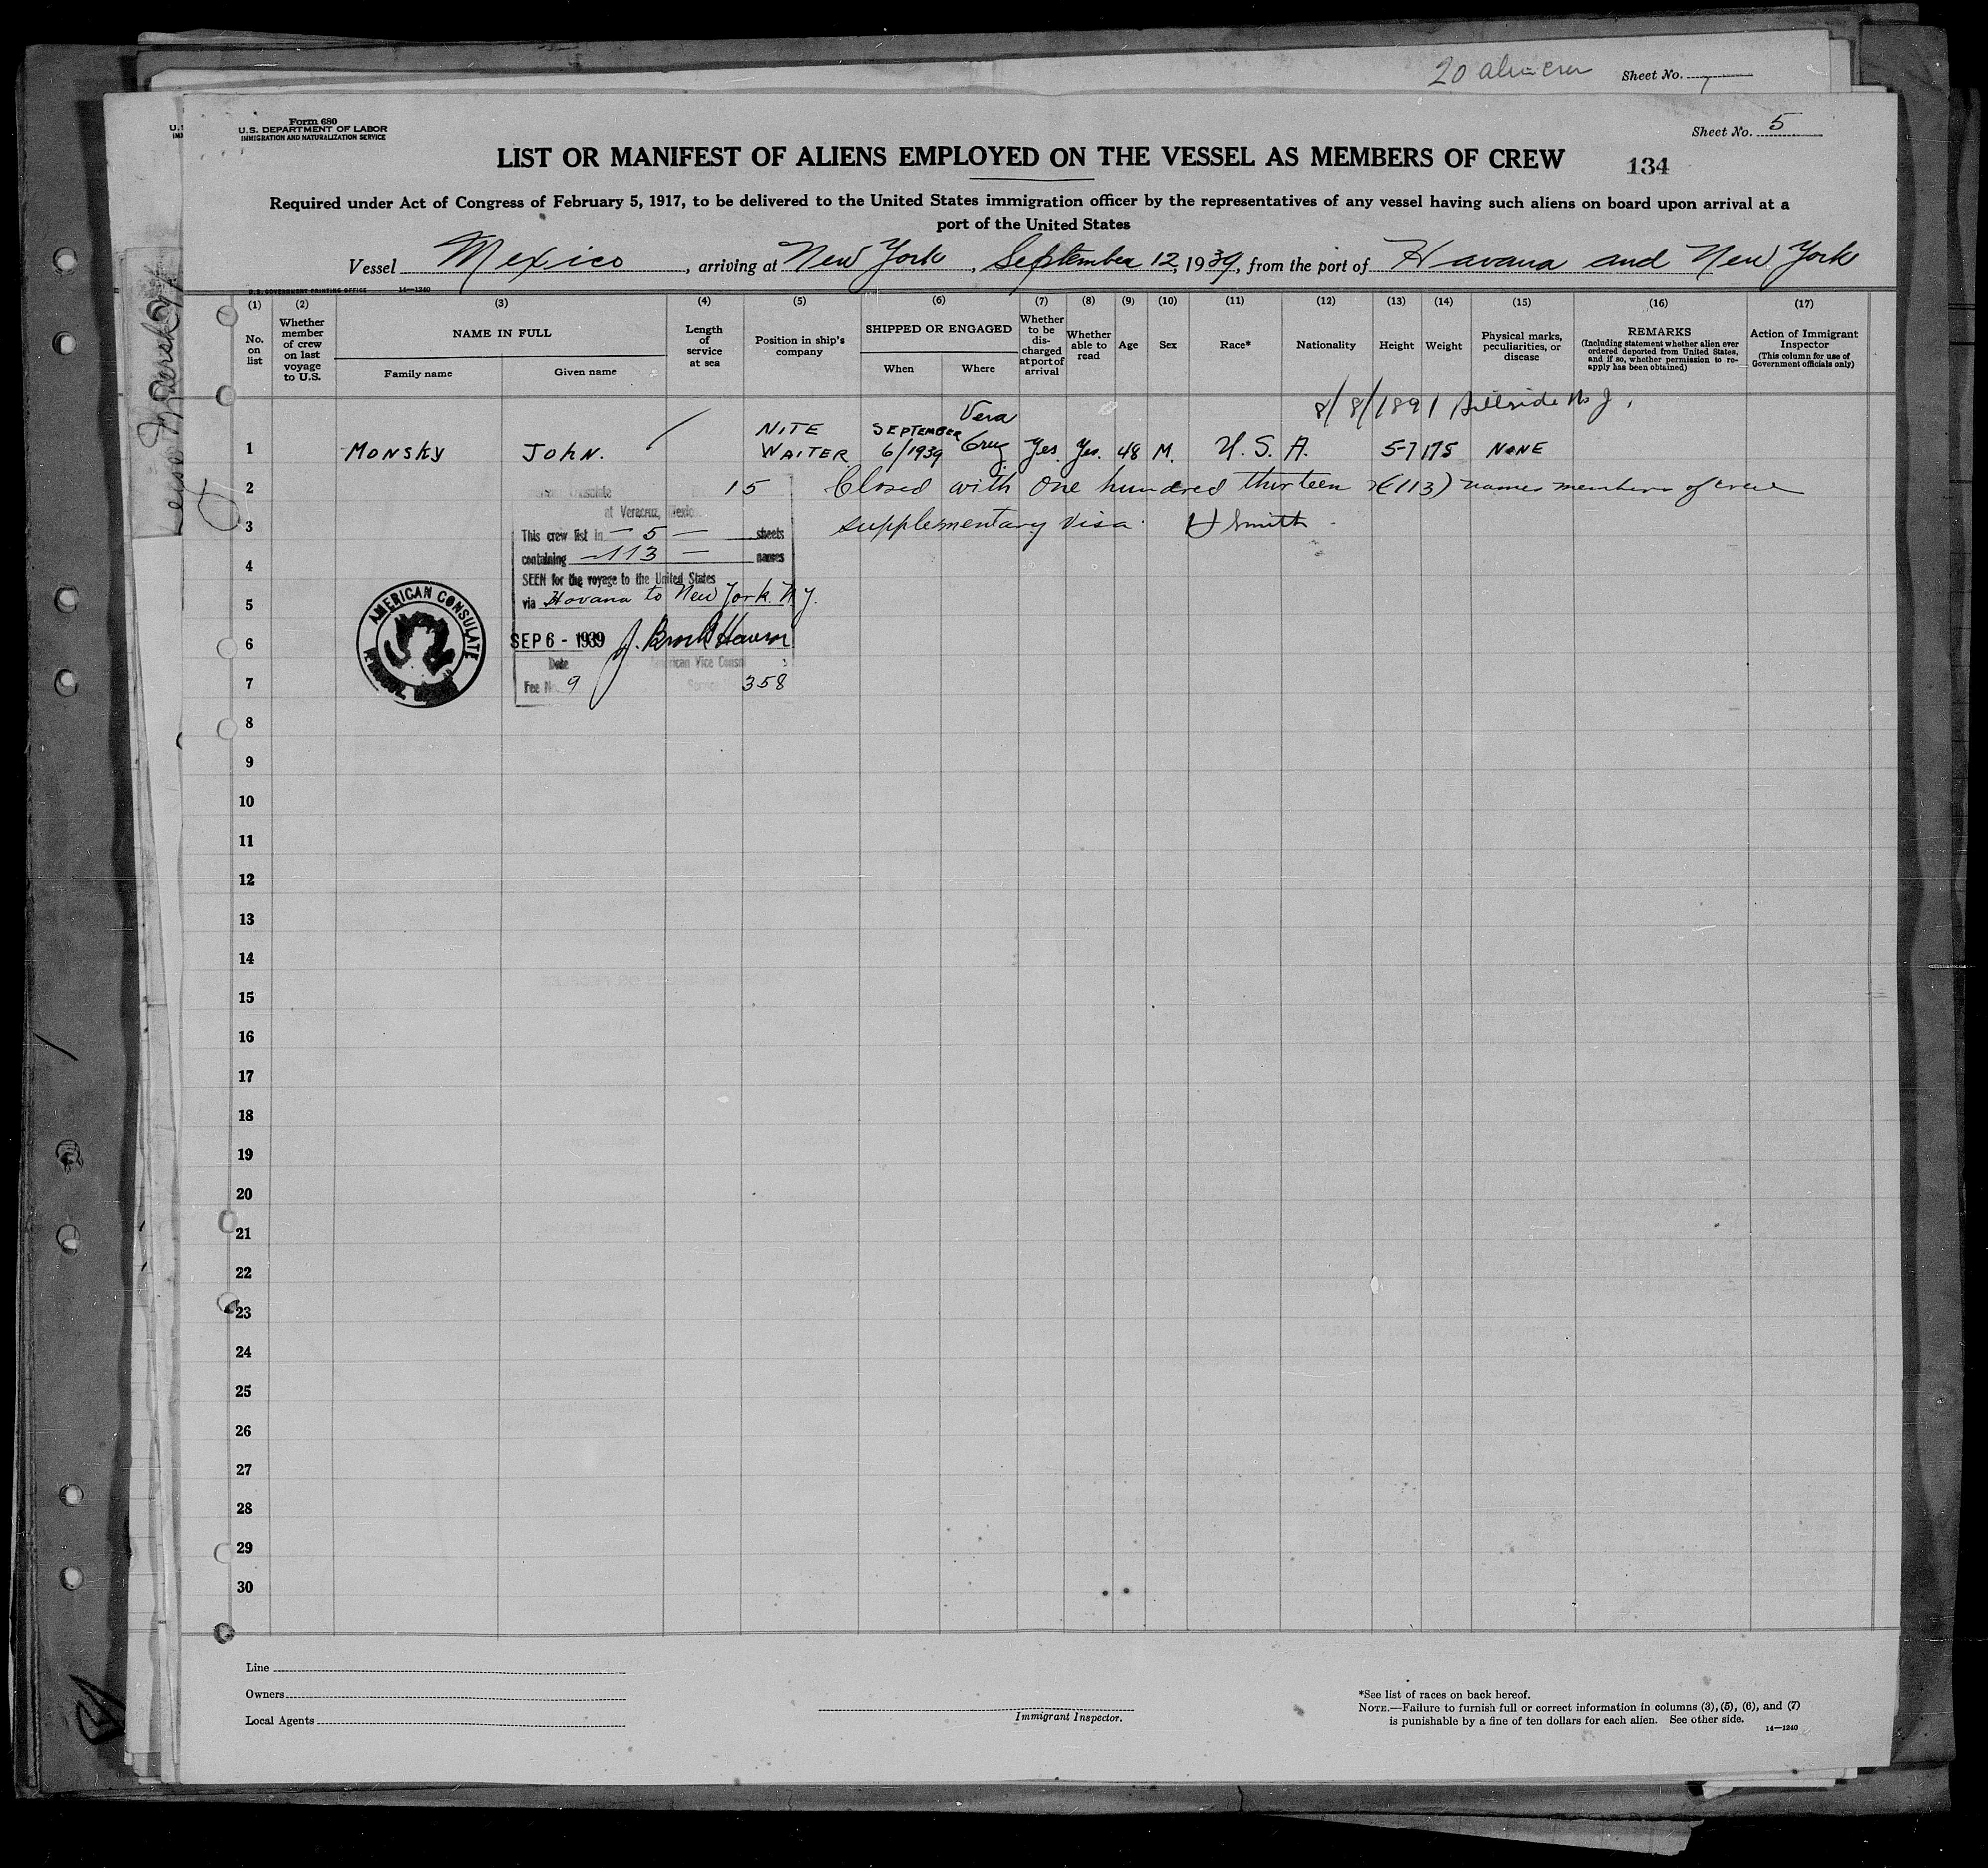 20 alien crew Sheet No.
Form 680
U.S. DEPARTMENT OF LABOR
IMMIGRATION AND NATURALIZATION SERVICE
Sheet No. 5
LIST OR MANIFEST OF ALIENS EMPLOYED ON THE VESSEL AS MEMBERS OF CREW
134
Required under Act of Congress of February 5, 1917, to be delivered to the United States immigration officer by the representatives of any vessel having such aliens on board upon arrival at a
port of the United States
Vessel Mexico, arriving at New York, September 12, 1939, from the port of Havana and New York
U.S. GOVERNMENT PRINTING OFFICE 14—1240
(1) (2) (3) (4) (5) (6) (7) (8) (9) (10) (11) (12) (13) (14) (15) (16) (17)
No. on list
Whether member of crew on last voyage to U.S.
NAME IN FULL
Family name Given name
Length of service at sea
Position in ship's company
SHIPPED OR ENGAGED
When Where
Whether to be discharged at port of arrival
Whether able to read
Age
Sex
Race*
Nationality
Height
Weight
Physical marks, peculiarities, or disease
REMARKS
(Including statement whether alien ever ordered deported from United States, and if so, whether permission to re-apply has been obtained)
Action of Immigrant Inspector
(This column for use of Government officials only)
8/8/1891 Hillside N. J.
1 MONSKY JOHN. NITE WAITER SEPTEMBER 6/1939 Vera Cruz Yes. Yes. 48 M. U. S. A. 5-7 175 NONE
2 15 Closed with one hundred thirteen (113) names members of crew
3 supplementary visa. H Smith
4
5
6
7
8
9
10
11
12
13
14
15
16
17
18
19
20
21
22
23
24
25
26
27
28
29
30
at Veracruz, Mexico.
This crew list in — 5 — sheets
containing — 113 — names
SEEN for the voyage to the United States
via Havana to New York. N.Y.
SEP 6 - 1939
Date American Vice Consul
Fee No. 9 358
AMERICAN CONSULATE
Line
Owners
Local Agents
Immigrant Inspector.
*See list of races on back hereof.
NOTE.—Failure to furnish full or correct information in columns (3), (5), (6), and (7)
is punishable by a fine of ten dollars for each alien. See other side.
14—1240